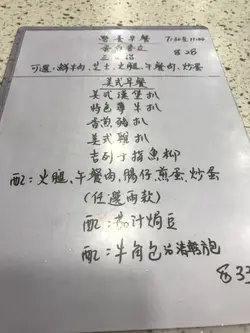 營養早餐 7:30至11:00
三治 $28
可選: 鮮牛肉、芝士、火腿、午餐肉、炒蛋
美式早餐
美式漢堡扒
特色薄牛扒
香煎豬扒
美式雞扒
吉列手指魚柳
配: 火腿、午餐肉、腸仔、煎蛋、炒蛋
(任選兩款)
配: 茄汁焗豆
配: 牛角包